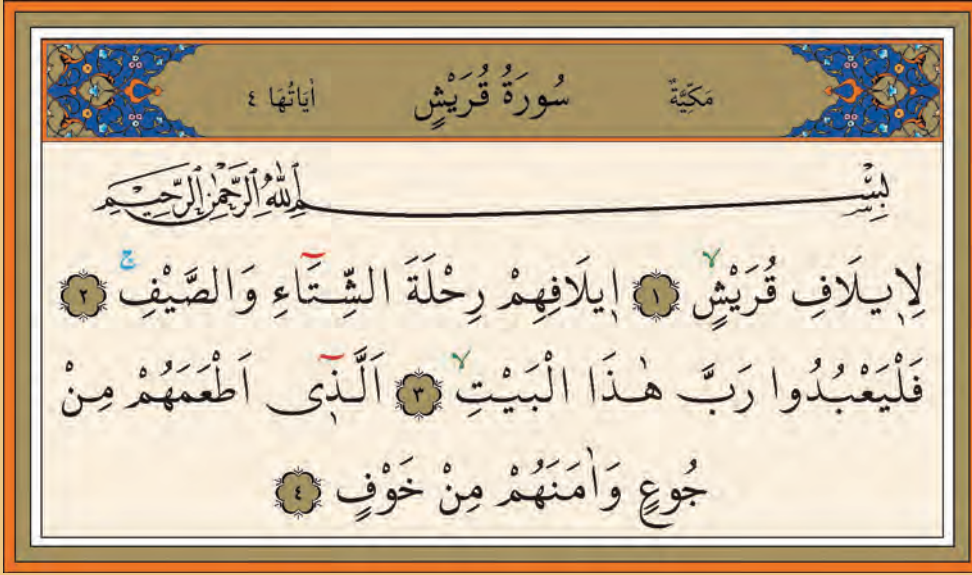 مَكِّيَّةٌ سُورَةُ قُرَيْشٍ اٰيَاتُهَا ٤
بِسْمِ اللّٰهِ الرَّحْمٰنِ الرَّحِيمِ
لِا۪يلَافِ قُرَيْشٍۙ ﴿١﴾ ا۪يلَافِهِمْ رِحْلَةَ الشِّتَٓاءِ وَالصَّيْفِۚ ﴿٢﴾
فَلْيَعْبُدُوا رَبَّ هٰذَا الْبَيْتِۙ ﴿٣﴾ اَلَّذ۪ٓي اَطْعَمَهُمْ مِنْ
جُوعٍ وَاٰمَنَهُمْ مِنْ خَوْفٍ ﴿٤﴾